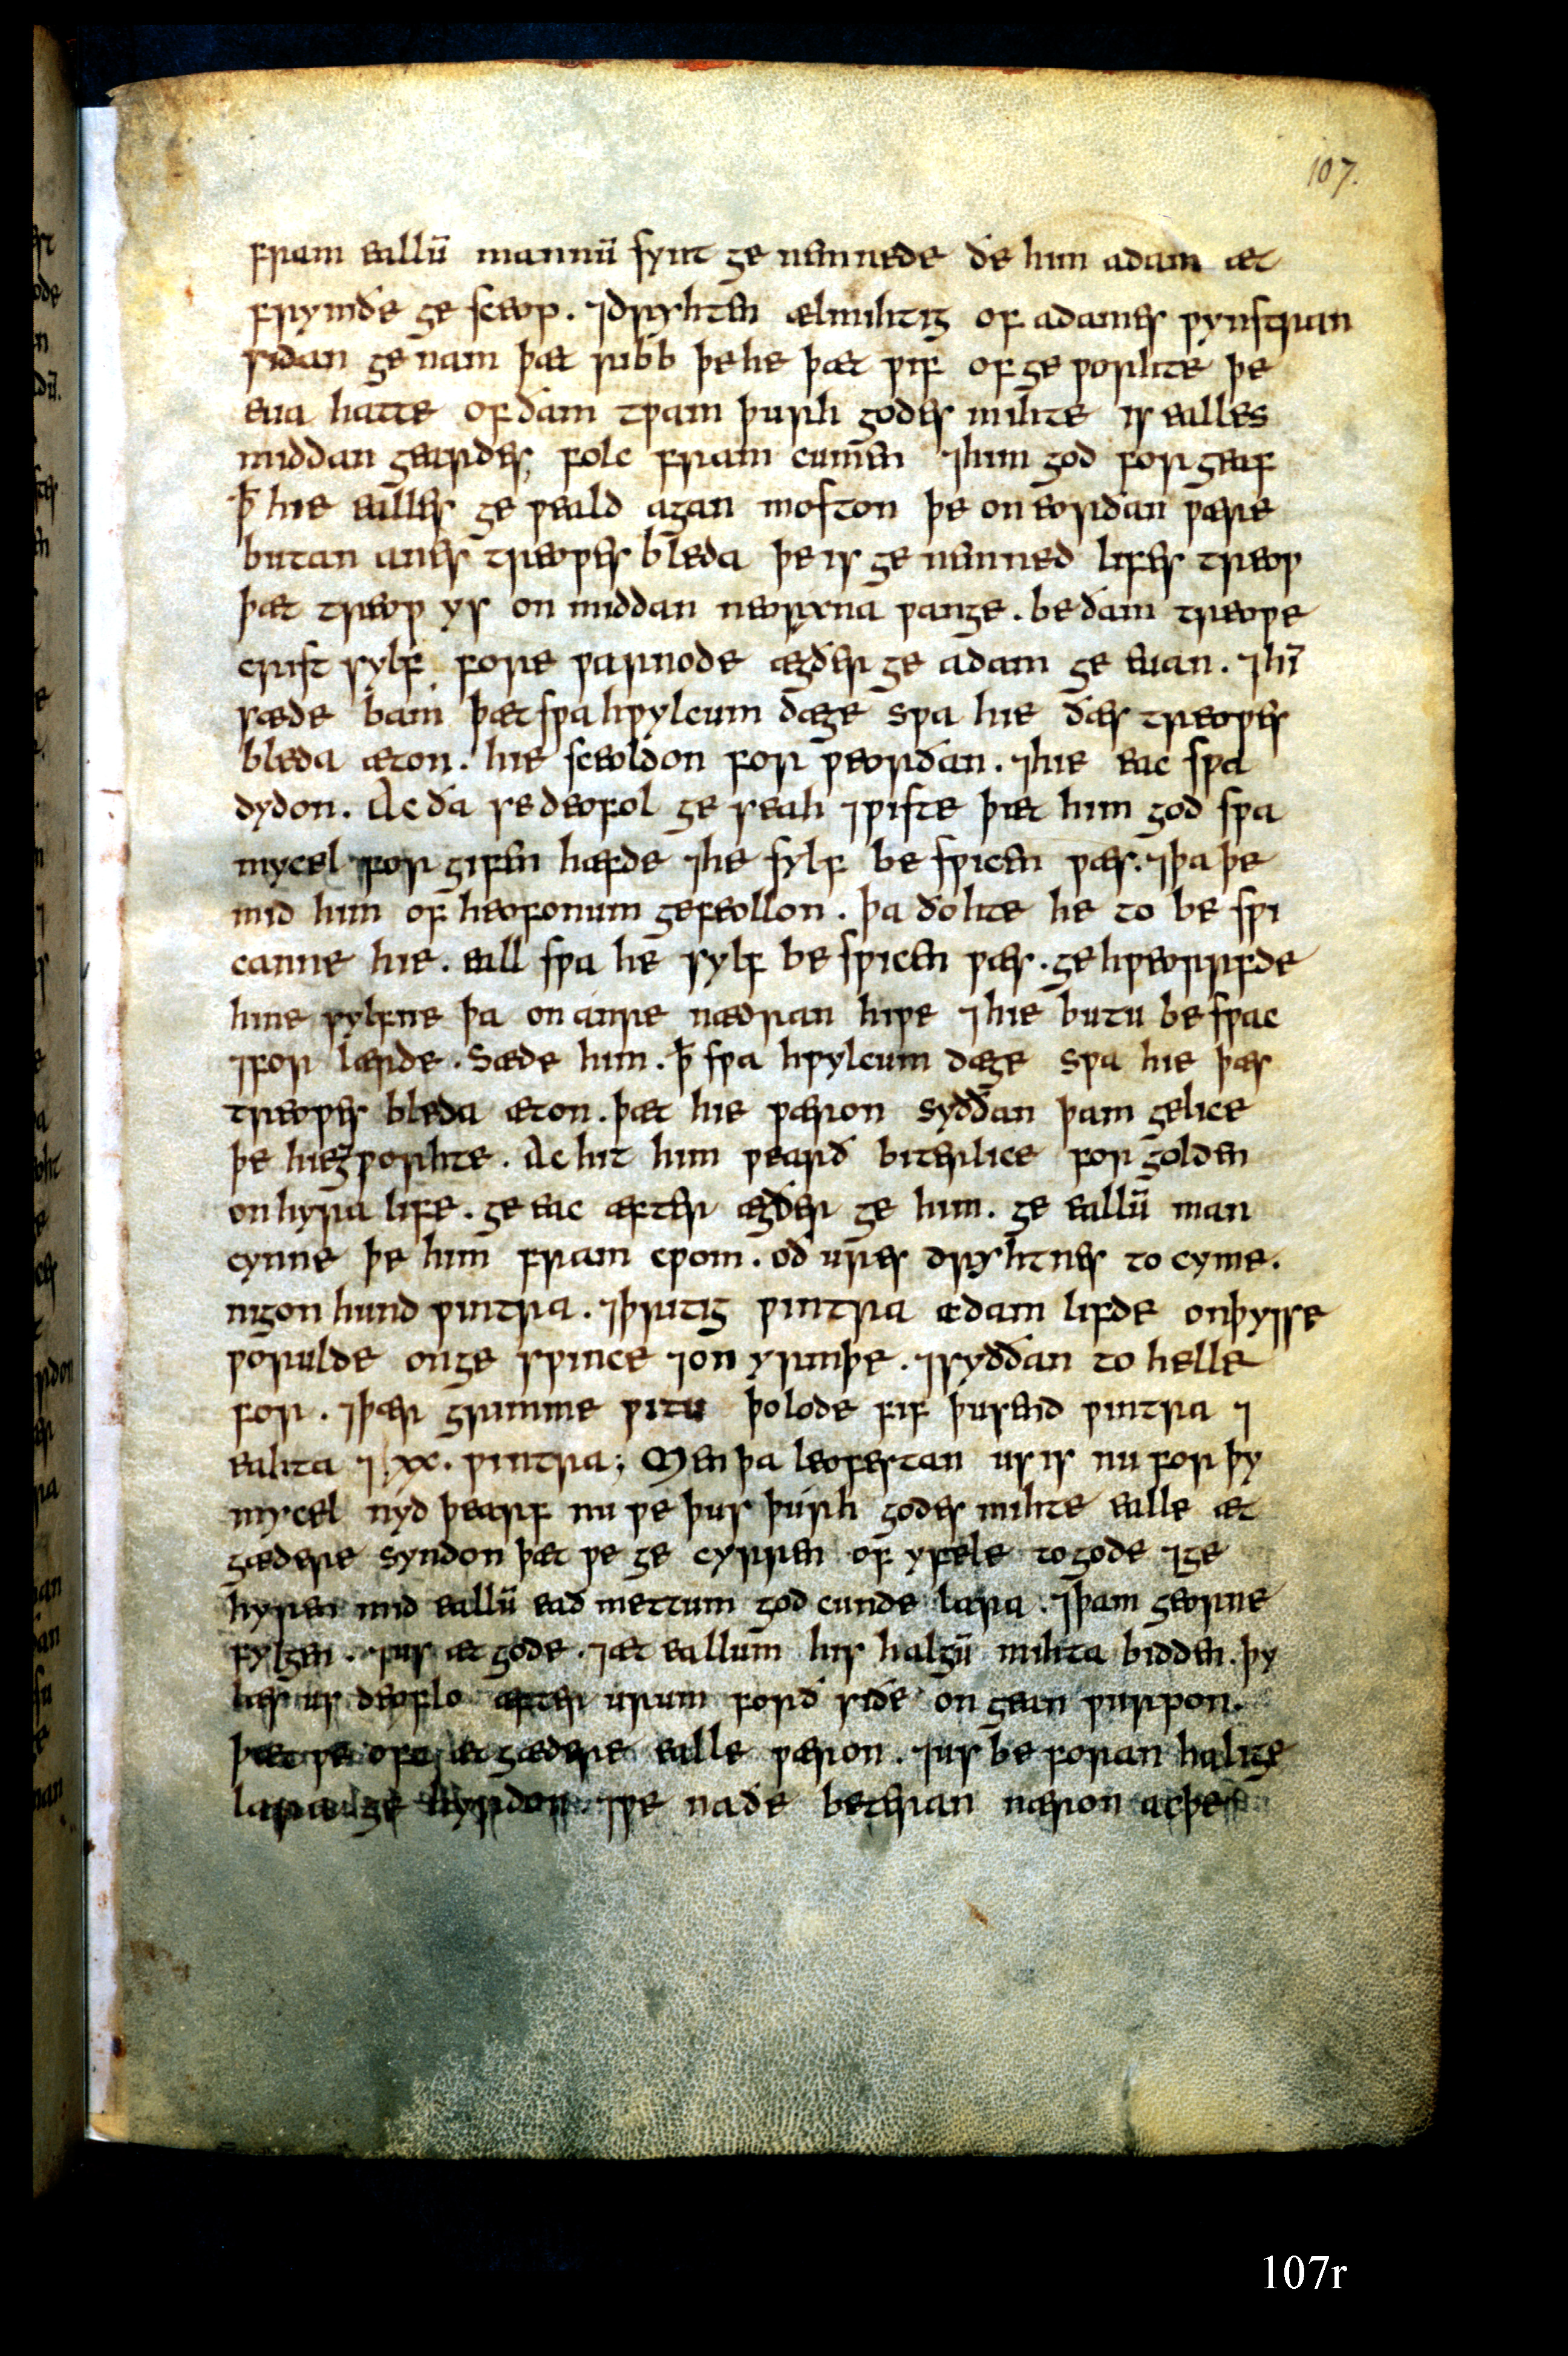 107.
fram eallū mannū synt ge nemnede ðe him adam æt
frymðe ge sceop. ⁊drẏhten ælmihtig of adames ƿynstran
sidan ge nam þæt ribb þe he þæt ƿif of ge ƿorhte þe
eua hatte of ðam tƿam þurh godes mihte is ealles
middan geardes folc fram cumen ⁊him god for geaf
ꝥ hie ealles ge ƿeald agan moston þe on eorðan ƿære
butan anes treoƿes bleda þe is ge nemned lifes treoƿ
þæt treoƿ ys on middan neorxna ƿange. be ðam treoƿe
crist sylf fore ƿarnode ægðer ge adam ge euan. ⁊hī
sæde bam þæt sƿa hƿylcum dæge sƿa hie ðæs treoƿes
bleda æton. hie sceoldon for ƿeorðan. ⁊hie eac sƿa
dydon. Ac ða se deofol ge seah ⁊ƿiste þæt him god sƿa
mycel for gifen hæfde ⁊he sylf be sƿicen ƿæs. ⁊þa þe
mid him of heofonum gefeollon. þa ðohte he to be sƿi
canne hie. eall sƿa he sylf be sƿicen ƿæs. ge hƿeorrfde
hine sylfne þa on anre nædran hiƿe ⁊hie butu be sƿac
⁊for lærde. Sæde him. ꝥ sƿa hƿylcum dæge sƿa hie þæs
treoƿes bleda æton. þæt hie ƿæron syððan þam gelice
þe hie geƿorhte. Ac hit him ƿearð biterlice for golden
on hyra life. ge eac æfter ægðer ge him. ge eallū man
cynne þe him fram cƿom. oð ures drẏhtnes to cyme.
nigon hund ƿintra. ⁊þritig ƿintra adam lifde on þysse
ƿorulde on ge sƿince ⁊on yrmþe. ⁊syððan to helle
for. ⁊þær grimme ƿitu þolode fif þusend ƿintra ⁊
eahta ⁊ .xx. ƿintra; Men þa leofestan us is nu for þy
mycel nyd þearf nu ƿe þus þurh godes mihte ealle æt
gædere syndon þæt ƿe ge cyrren of yfele to gode ⁊ge
hyren mid eallū eað mettum god cunde lara. ⁊þam georne
fylgen. ⁊us æt gode. ⁊æt eallum his halgū mihta bidden. þy
læs us deoflo æfter urum forð siðe on gean ƿurpon.
þæt ƿe oft æt gædere ealle ƿæron. ⁊us be foran halige
lara ge hyrdon. ⁊ƿe na ðe beteran næron ac þe
107r